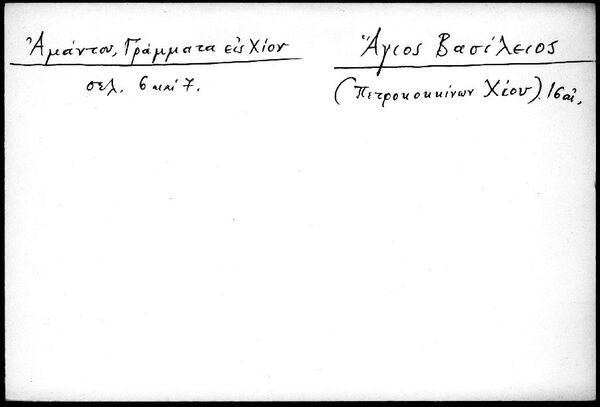 Ἀμάντου, Γράμματα εἰς Χίον
σελ. 6 και 7.
Ἅγιος Βασίλειος
(Πετροκοκκίνων Χίου). 16 αἰ.